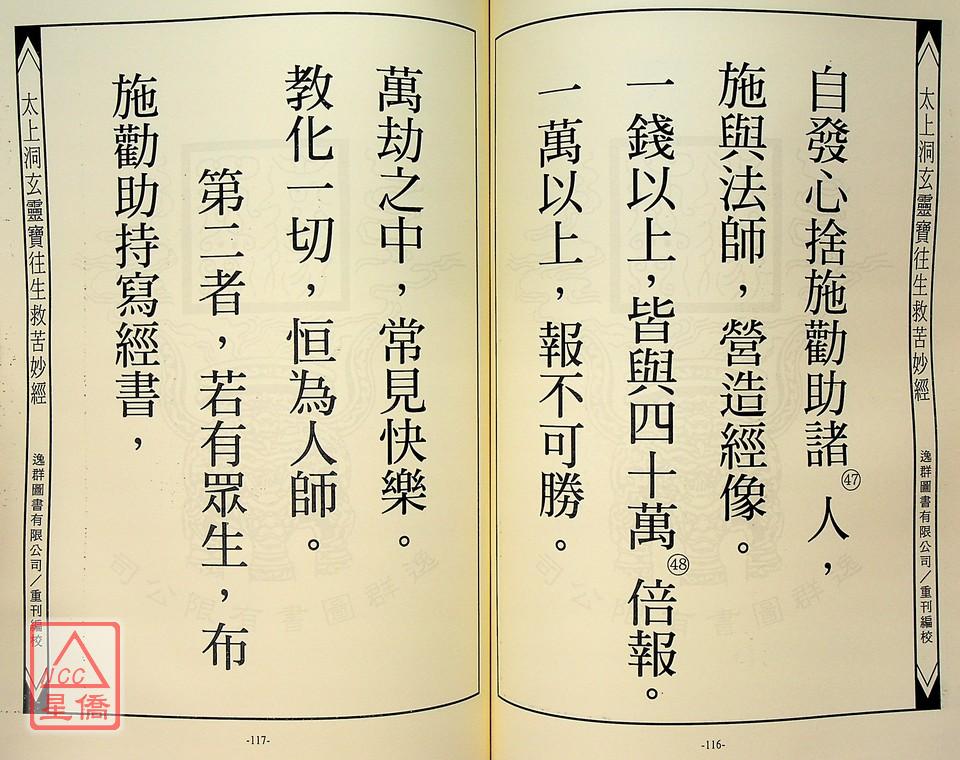 太上洞玄靈寶往生救苦妙經
逸群圖書有限公司/重刊編校
自發心捨施勸助諸㊼人,
施與法師,營造經像。
一錢以上,皆與四十萬㊽倍報。
一萬以上,報不可勝。
-116-
萬劫之中,常見快樂。
教化一切,恒為人師。
第二者,若有眾生,布
施勸助持寫經書,
太上洞玄靈寶往生救苦妙經
逸群圖書有限公司/重刊編校
-117-
逸群圖書有限公司
NCC
星僑